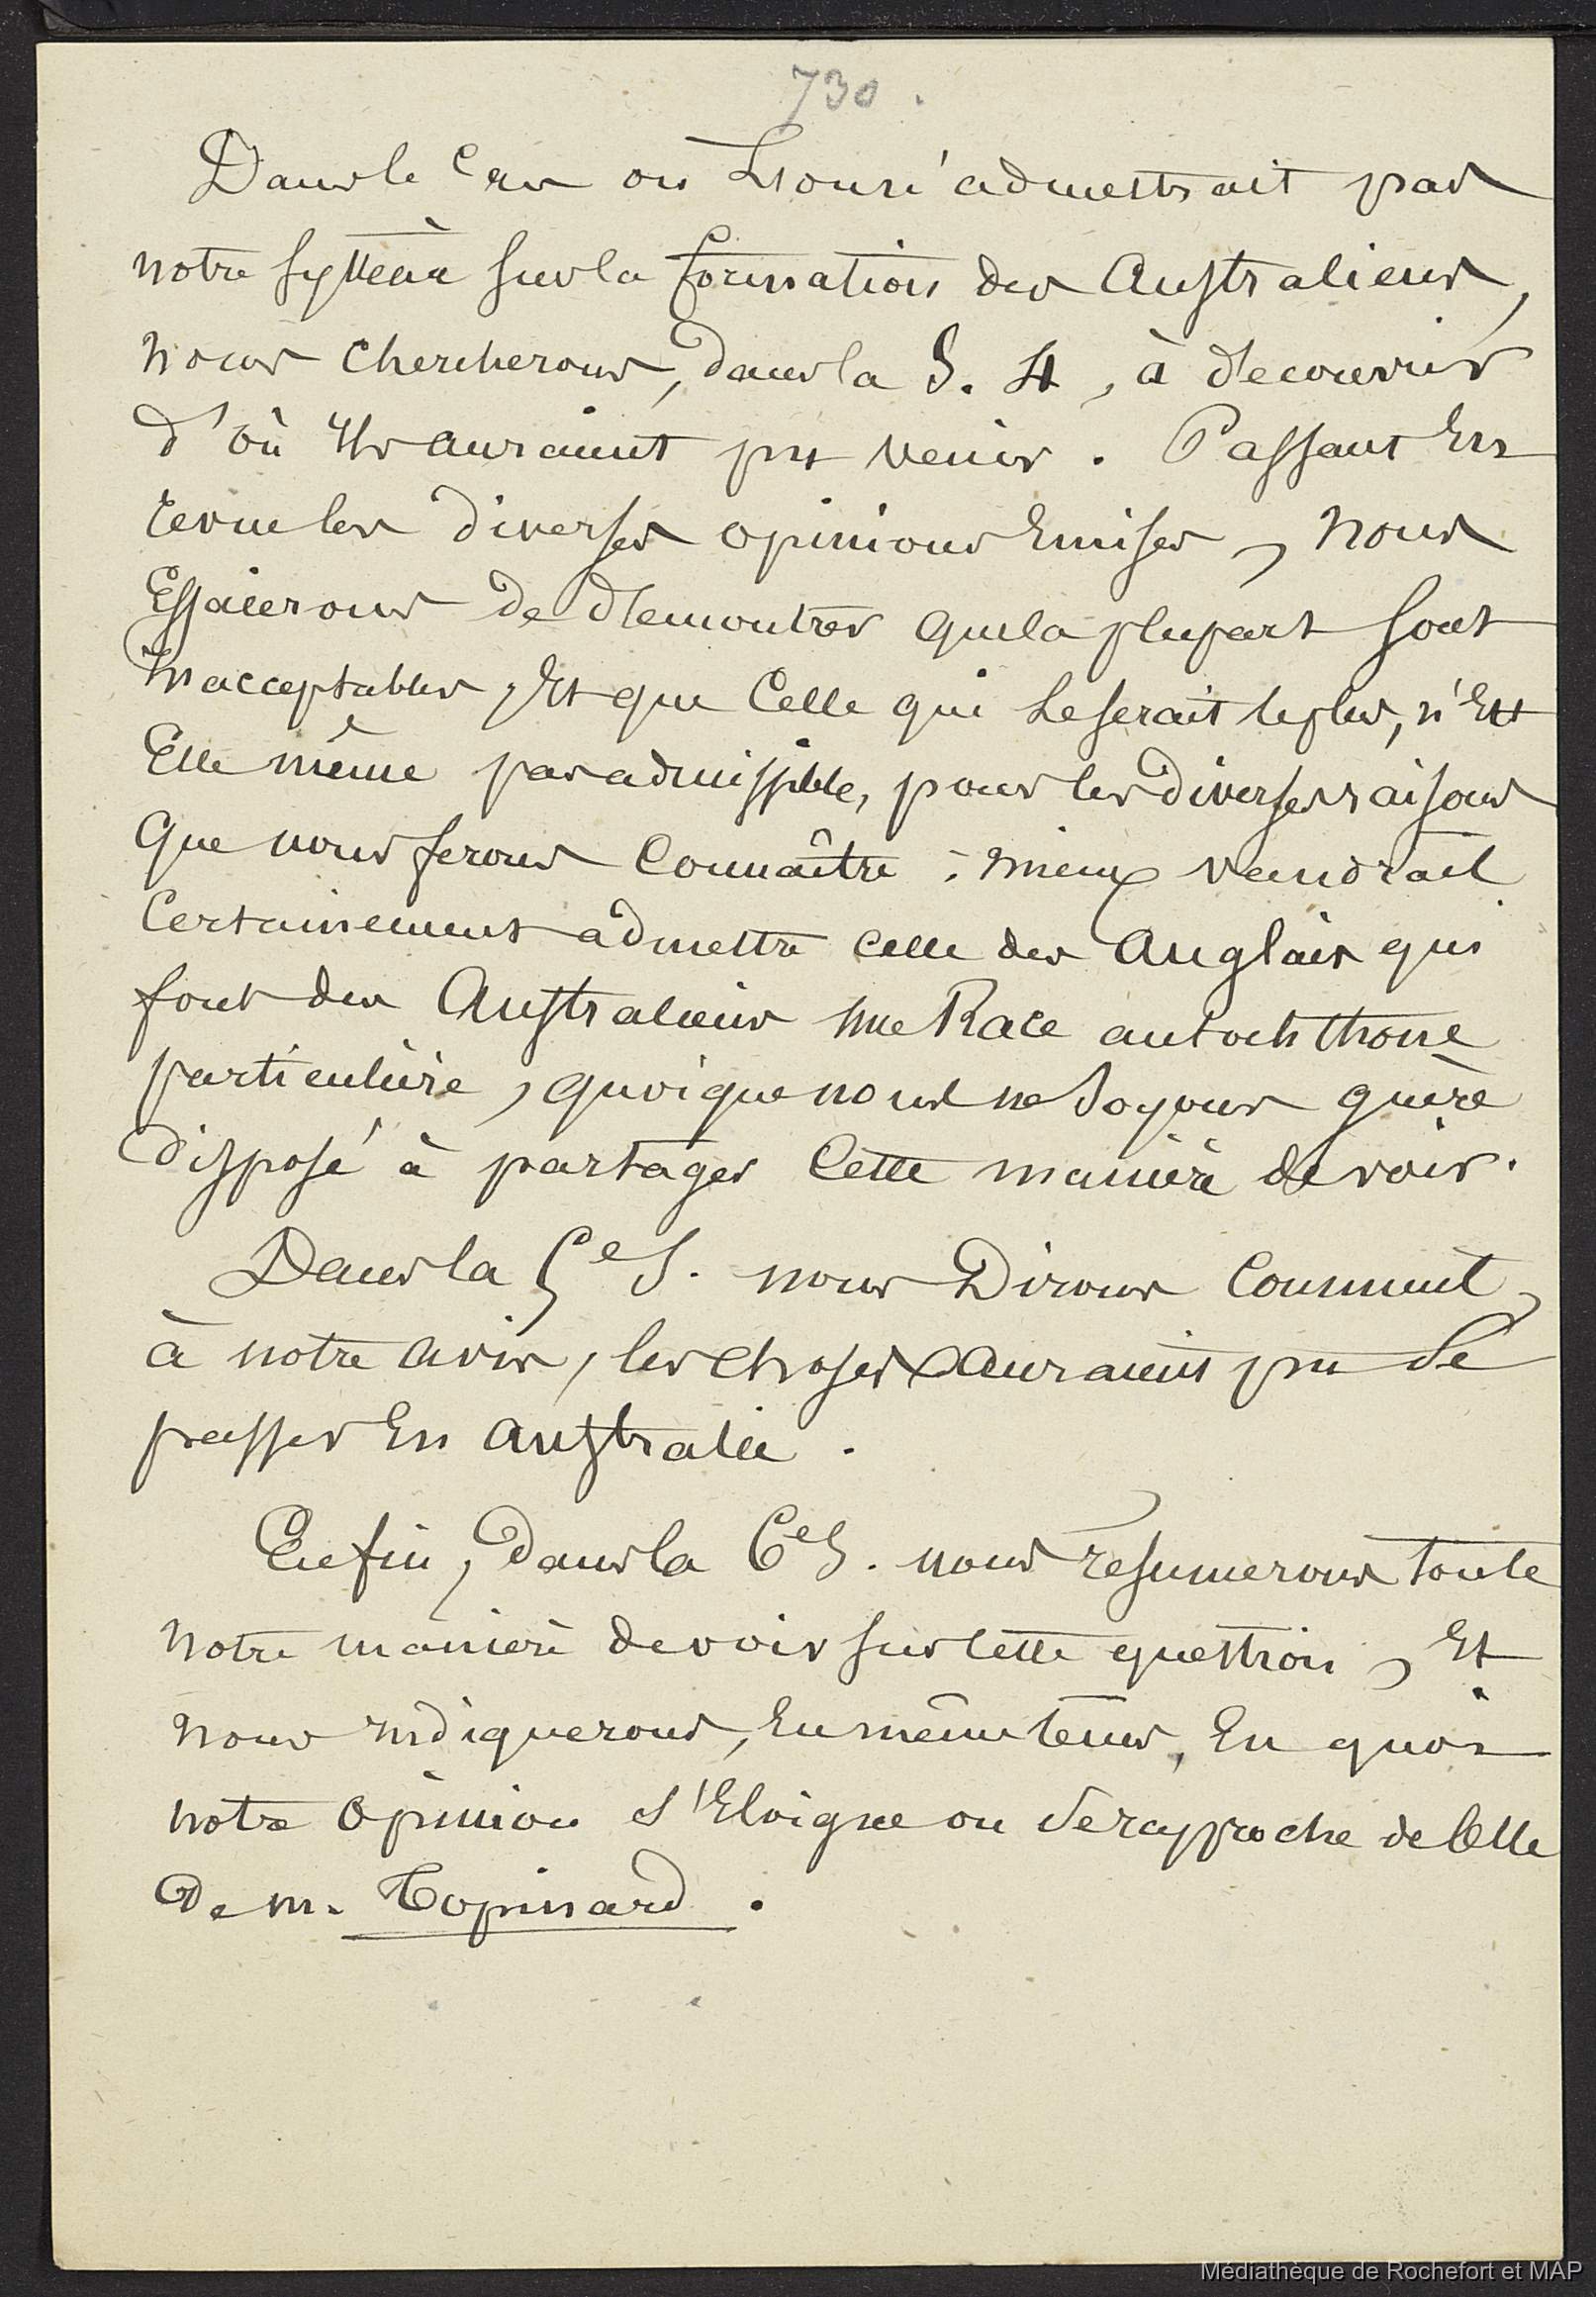 730.
Dans le Cas où L'on n'admettrait pas
notre système sur la formation des Australiens,
nous chercherons, dans la S. 4, à découvrir
d'où Ils auraient pu venir. Passant En
revue les diverses opinions Emises, nous
Essaierons de démontrer que la plupart sont
Inacceptables, Et que Celle qui Le serait le plus, n'Est
Elle même pas admissible, pour les diverses raisons
Que nous ferons Connaître ; mieux vaudrait
Certainement admettre celle des Anglais qui
font des Australiens une Race autochthone
particulière, quoique nous ne soyons guère
disposé à partager Cette manière de voir.
Dans la 5e S. nous Dirons Comment,
à notre avis, les choses auraient pu se
passer En Australie.
Enfin, dans la 6e S. nous résumerons toute
notre manière de voir sur cette question, Et
nous Indiquerons, En même tems, En quoi
notre Opinion s'Eloigne ou se rapproche de Celle
De m. Topinard.
Médiathèque de Rochefort et MAP